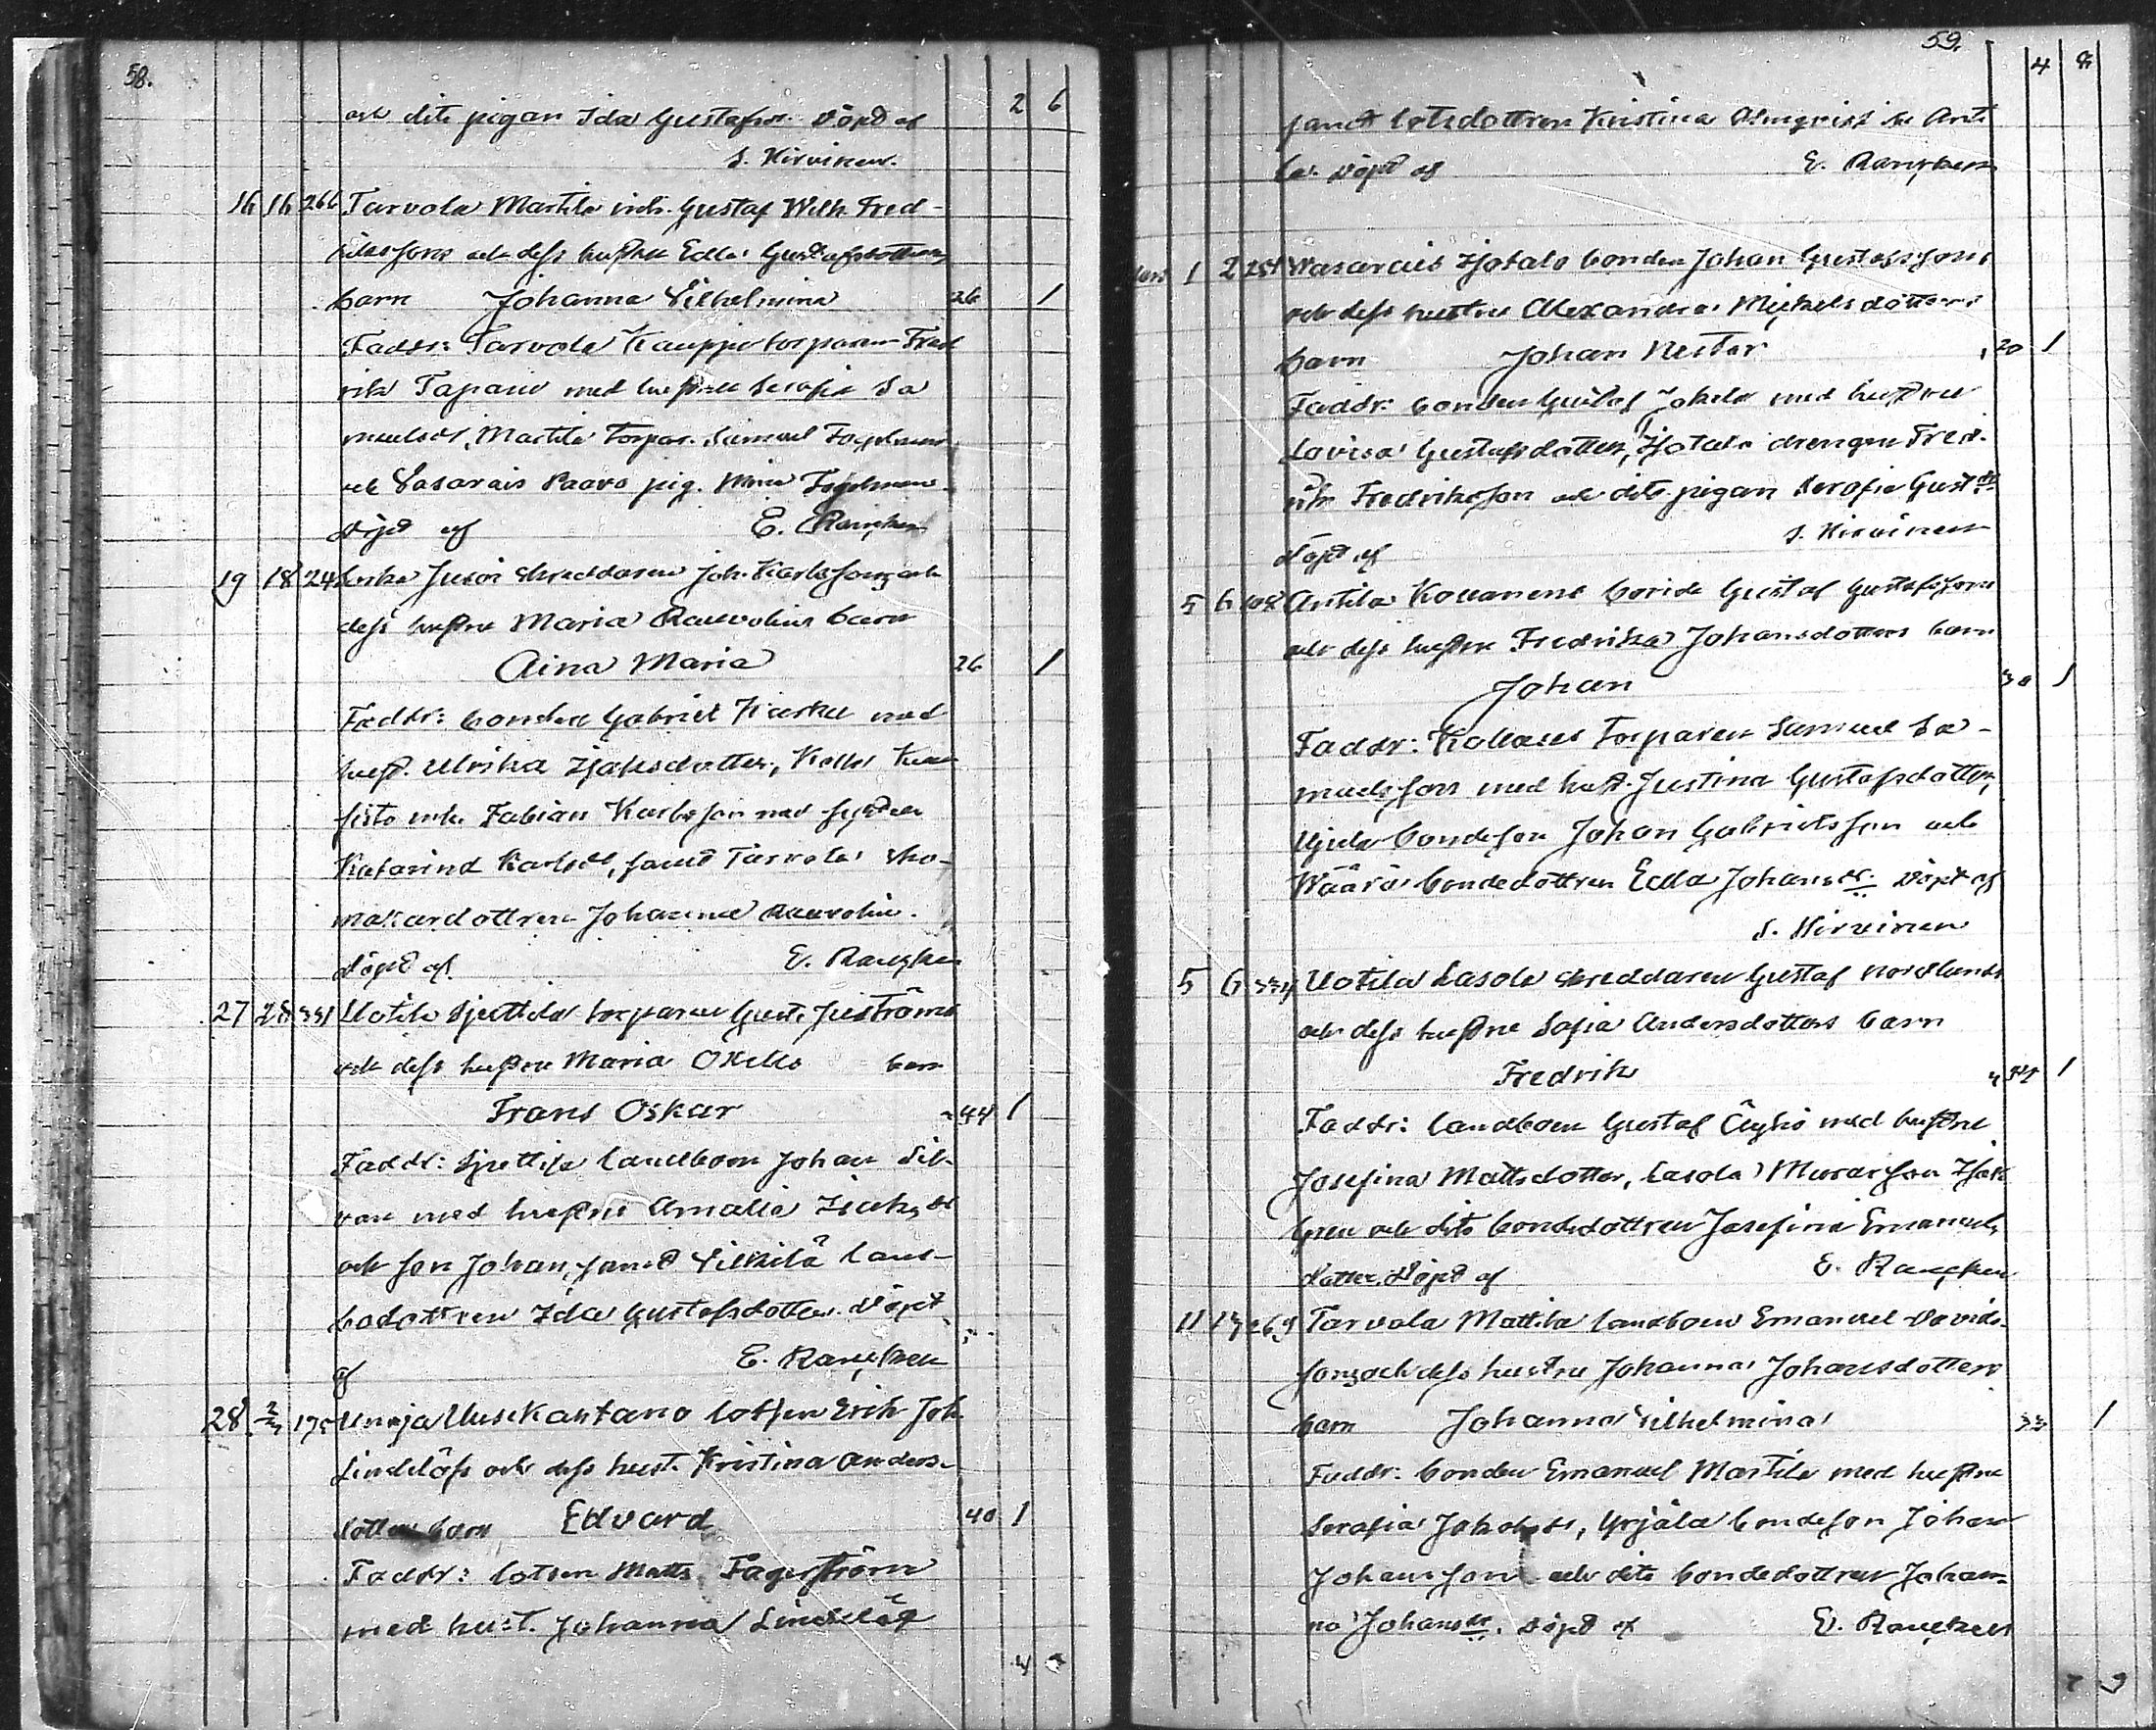 58.
2 6
och dito pigan Ida Gustafsdr. Döpt af
S. Hirvinen.
16 16 266 Tarvola Martila inh. Gustaf Wilh. Fred-
rikssons och dess hustru Edla Gustafsdotters
barn Johanna Vilhelmina 26 1
Faddr: Tarvola Kauppi torparen Fred
rik Tapani med hustru Serafia Sa
muelsdr, Martila torpar. Samuel
och Vasarais Paavo pig. Mina
Döpt af E. Rancken
19 18 24 Juson skreddaren Joh. Karlssons och
dess hustru Maria Rauvolins barn
Aina Maria 26 1
Faddr: bonden Gabriel med
hust. Ulrika Isaksdotter,
inh. Fabian Karlsson med syster
Katarina Karlsdr, samt Tarvola sko-
makardottren Johanna Rauvolin.
Döpt af E. Rancken
27 28 331 Uotila Sjettilä torparen Gust. Juströms
och dess hustru Maria barn
Frans Oskar 44 1
Faddr: landboen Johan Sil-
van med hustru Amalia Isaksdr
och son Johan, samt land-
bodottren Ida Gustafsdotter. Döpt
af E. Rancken
28 2/3 175 Unaja Uusikartano lotsen Erik Joh.
Lindelöfs och dess hust. Kristina Anders-
dotters barn Edvard 40 1
Faddr: lotsen Matts Fagerström
med hust. Johanna Lindelöf
4
59.
4 8
samt lotsdottren Kristina Almqvist
la. Döpt af E. Rancken
1 2 254 Wasarais Isotalo bonden Johan Gustafssons
och dess hustru Alexandra Mickelsdotters
barn Johan Nestor 20 1
Faddr: bonden Gustaf Jokela med hustru
Lovisa Gustafsdotter, Isotalo drengen Fred-
rik Fredriksson och dito pigan Serafia Gustdr.
Döpt af S. Hirvinen
5 6 108 Antila Kouanens bonde Gustaf Gustafssons
och dess hustru Fredrika Johansdotters barn
Johan 30 1
Faddr: torparen Samuel Sa-
muelsson med hust. Justina Gustafsdotter,
bondeson Johan Gabrielsson och
Wäärä bondedottren Edla Johansdr. Döpt af
S. Hirvinen
5 6 334 Uotila Lasola skreddaren Gustaf Nordlunds
och dess hustru Sofia Andersdotters barn
Fredrik 34 1
Faddr: landboen Gustaf Äyhö med hustru
Josefina Mattsdotter, Lasola Murarson Isak
Gren och dito bondedottren Josefina Emanuels
dotter. Döpt af E. Rancken
11 13 269 Tarvola Mattila landboen Emanuel Davids-
sons och dess hustru Johanna Johansdotters
barn Johanna Vilhelmina 33 1
Faddr: bonden Emanuel Martila med hustru
Serafia Johansdr, Yrjälä bondeson Johan
Johansson och dito bondedottren Johan-
na Johansdr. Döpt af E. Rancken
7 9